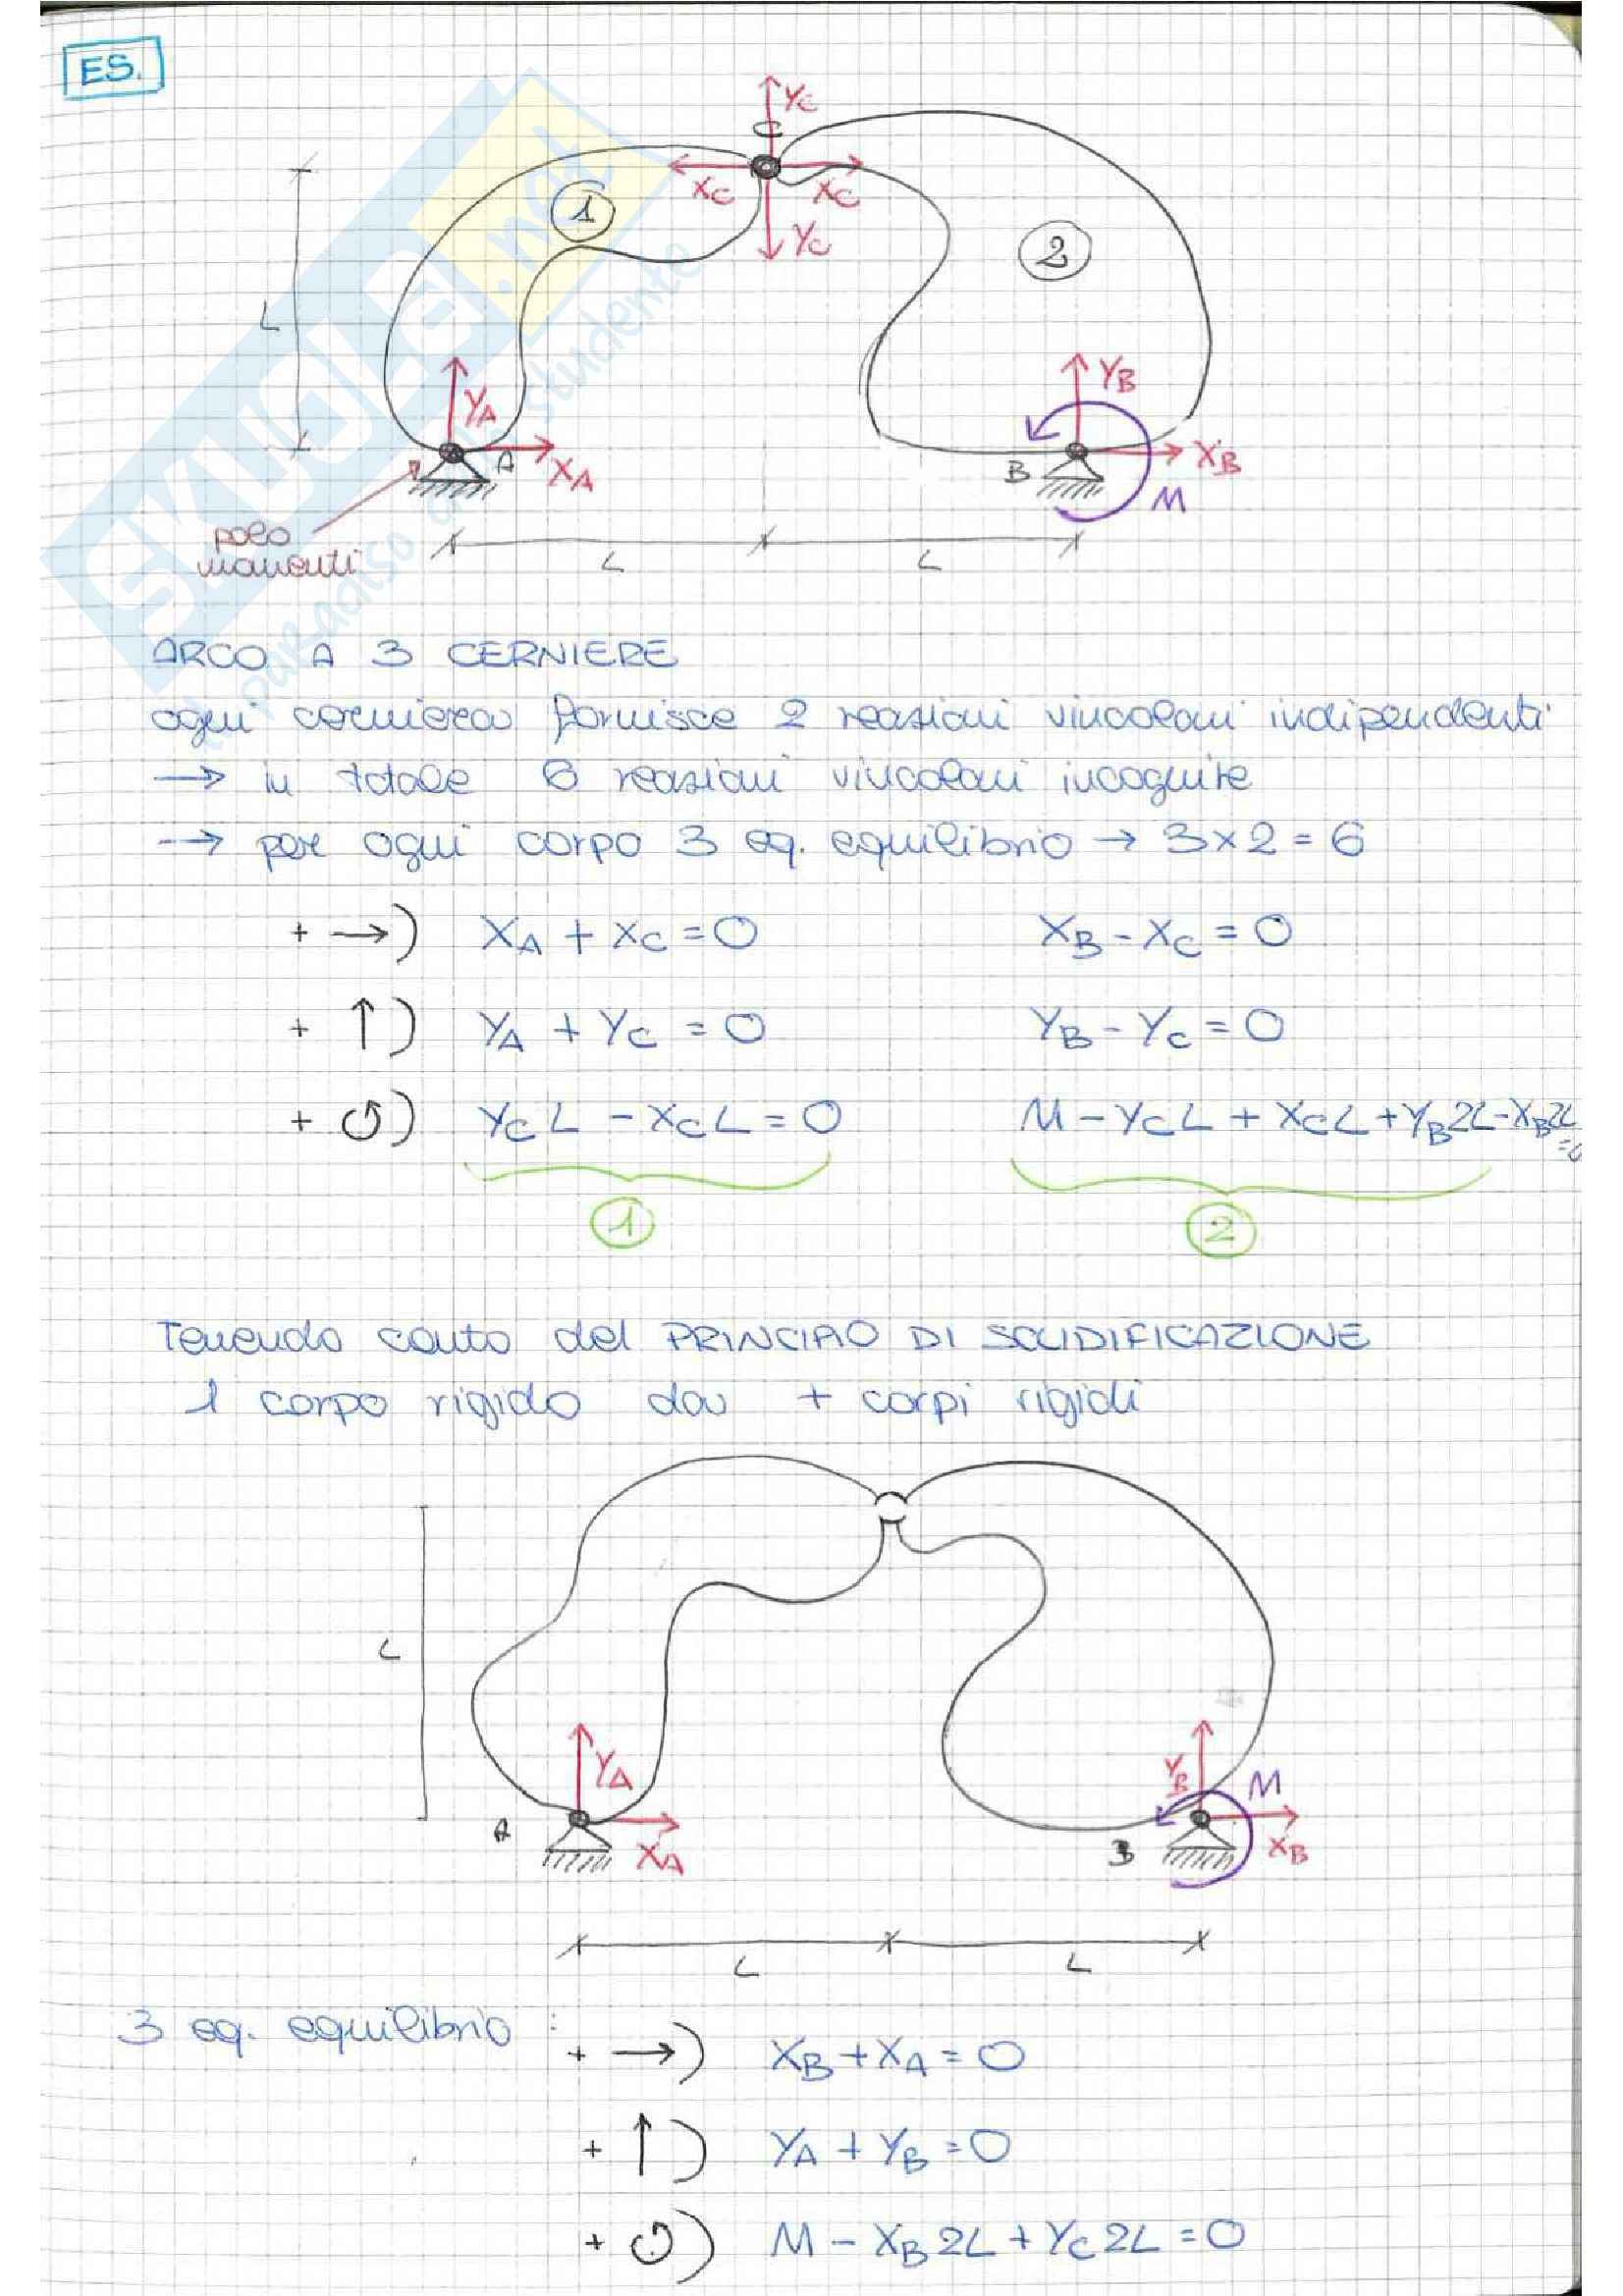 ES.
Y_C
C
X_C X_C
1
Y_C
2
L
Y_A
A
X_A
Y_B
B
X_B
M
polo
momenti
L L
ARCO A 3 CERNIERE
ogni cerniera fornisce 2 reazioni vincolari indipendenti
→ in totale 6 reazioni vincolari incognite
→ per ogni corpo 3 eq. equilibrio → 3x2 = 6
+ →) X_A + X_C = 0 X_B - X_C = 0
+ ↑) Y_A + Y_C = 0 Y_B - Y_C = 0
+ ↺) Y_C L - X_C L = 0 M - Y_C L + X_C L + Y_B 2L - X_B 2L = 0
1 2
Tenendo conto del PRINCIPIO DI SOLIDIFICAZIONE
1 corpo rigido da + corpi rigidi
L
Y_A
A
X_A
Y_B
M
B
X_B
L L
3 eq. equilibrio :
+ →) X_B + X_A = 0
+ ↑) Y_A + Y_B = 0
+ ↺) M - X_B 2L + Y_C 2L = 0
SKUOLA.net
il paradiso dello studente